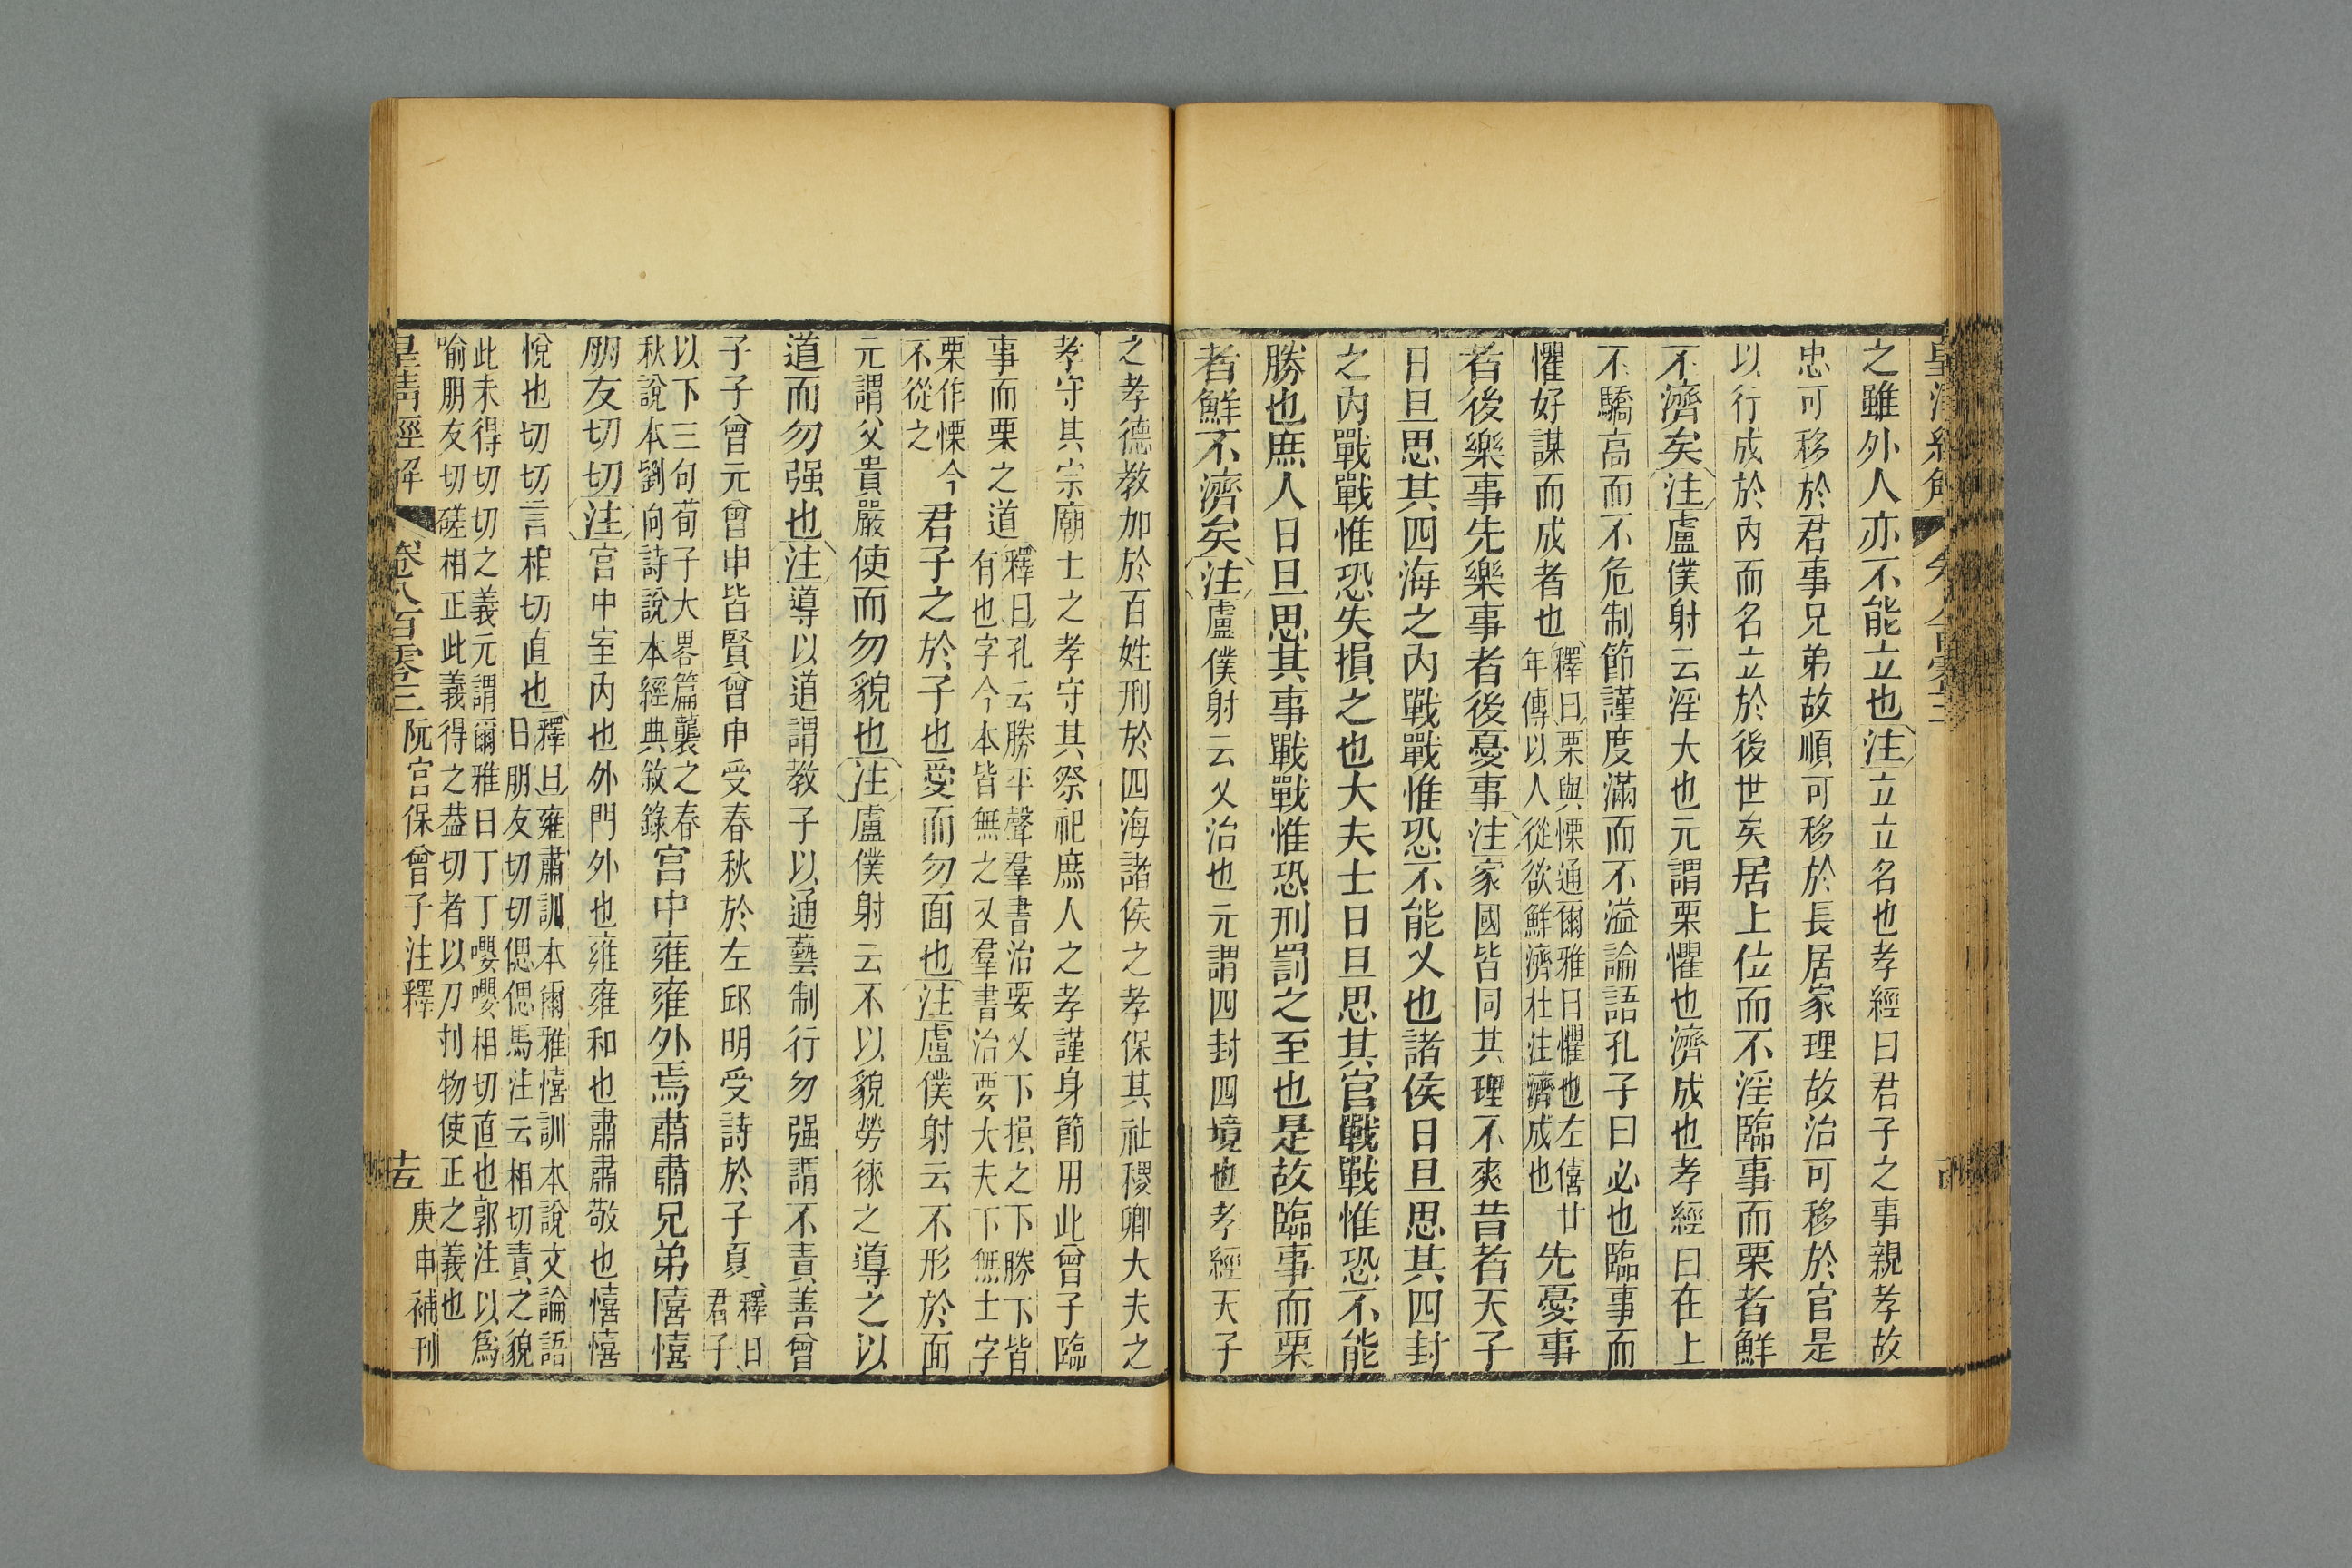 皇清經解
之雖外人亦不能立也注立立名也孝經曰君子之事親孝故
忠可移於君事兄弟故順可移於長居家理故治可移於官是
以行成於內而名立於後世矣居上位而不淫臨事而栗者鮮
不濟矣注盧僕射云淫大也元謂栗懼也濟成也孝經曰在上
不驕高而不危制節謹度滿而不溢論語孔子曰必也臨事而
懼好謀而成者也
釋曰栗與慄通爾雅曰懼也左僖廿
年傳以人從欲鮮濟杜注濟成也
先憂事
者後樂事先樂事者後憂事注家國皆同其理不爽昔者天子
日旦思其四海之內戰戰惟恐不能乂也諸侯日旦思其四封
之內戰戰惟恐失損之也大夫士日旦思其官戰戰惟恐不能
勝也庶人日旦思其事戰戰惟恐刑罰之至也是故臨事而栗
者鮮不濟矣注盧僕射云乂治也元謂四封四境也孝經天子
之孝德教加於百姓刑於四海諸侯之孝保其社稷卿大夫之
孝守其宗廟士之孝守其祭祀庶人之孝謹身節用此曾子臨
事而栗之道
釋曰孔云勝平聲羣書治要乂下損之下勝下皆
有也字今本皆無之又羣書治要大夫下無士字
栗作慄今
不從之
君子之於子也愛而勿面也注盧僕射云不形於面
元謂父貴嚴使而勿貌也注盧僕射云不以貌勞徠之導之以
道而勿强也注導以道謂教子以通藝制行勿强謂不責善曾
子子曾元曾申皆賢曾申受春秋於左邱明受詩於子夏
釋曰
君子
以下三句荀子大畧篇襲之春
秋說本劉向詩說本經典敘錄
宮中雍雍外焉肅肅兄弟憘憘
朋友切切注宮中室內也外門外也雍雍和也肅肅敬也憘憘
悅也切切言相切直也
釋曰雍肅訓本爾雅憘訓本說文論語
曰朋友切切偲偲馬注云相切責之貌
此未得切切之義元謂爾雅曰丁丁嚶嚶相切直也郭注以為
喻朋友切磋相正此義得之葢切者以刀刌物使正之義也
皇清經解
卷八百零三
阮宮保曾子注釋
庚申補刊